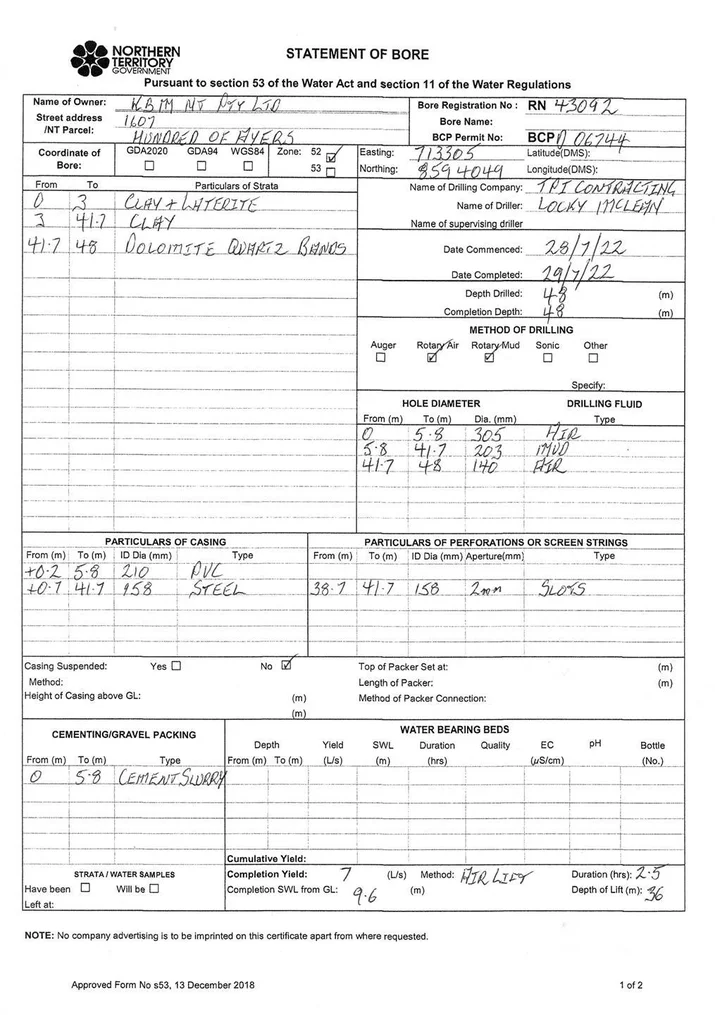 NORTHERN
TERRITORY
GOVERNMENT
STATEMENT OF BORE
Pursuant to section 53 of the Water Act and section 11 of the Water Regulations
Name of Owner: KBMM NT PTY LTD
Bore Registration No : RN 43092
Street address /NT Parcel: 1607
HUNDRED OF AYERS
Bore Name:
BCP Permit No: BCP 06744
Coordinate of Bore: GDA2020 ☐ GDA94 ☐ WGS84 ☐ Zone: 52 ☑ 53 ☐
Easting: 713305 Latitude(DMS):
Northing: 8594049 Longitude(DMS):
From To Particulars of Strata
0 3 CLAY + LATERITE
3 41.7 CLAY
41.7 48 DOLOMITE QUARTZ BANDS
Name of Drilling Company: TPI CONTRACTING
Name of Driller: LOCKY MCLEAN
Name of supervising driller
Date Commenced: 28/7/22
Date Completed: 29/7/22
Depth Drilled: 48 (m)
Completion Depth: 48 (m)
METHOD OF DRILLING
Auger ☐ Rotary Air ☑ Rotary Mud ☑ Sonic ☐ Other ☐
Specify:
HOLE DIAMETER DRILLING FLUID
From (m) To (m) Dia. (mm) Type
0 5.8 305 AIR
5.8 41.7 203 MUD
41.7 48 140 AIR
PARTICULARS OF CASING
From (m) To (m) ID Dia (mm) Type
+0.2 5.8 210 PVC
+0.7 41.7 158 STEEL
PARTICULARS OF PERFORATIONS OR SCREEN STRINGS
From (m) To (m) ID Dia (mm) Aperture(mm) Type
38.7 41.7 158 2mm SLOTS
Casing Suspended: Yes ☐ No ☑
Method:
Height of Casing above GL: (m)
(m)
Top of Packer Set at: (m)
Length of Packer: (m)
Method of Packer Connection:
CEMENTING/GRAVEL PACKING
From (m) To (m) Type
0 5.8 CEMENT SLURRY
WATER BEARING BEDS
Depth Yield SWL Duration Quality EC pH Bottle
From (m) To (m) (L/s) (m) (hrs) (µS/cm) (No.)
Cumulative Yield:
STRATA / WATER SAMPLES
Have been ☐ Will be ☐
Left at:
Completion Yield: 7 (L/s) Method: AIR LIFT Duration (hrs): 2.5
Completion SWL from GL: 9.6 (m) Depth of Lift (m): 36
NOTE: No company advertising is to be imprinted on this certificate apart from where requested.
Approved Form No s53, 13 December 2018
1 of 2